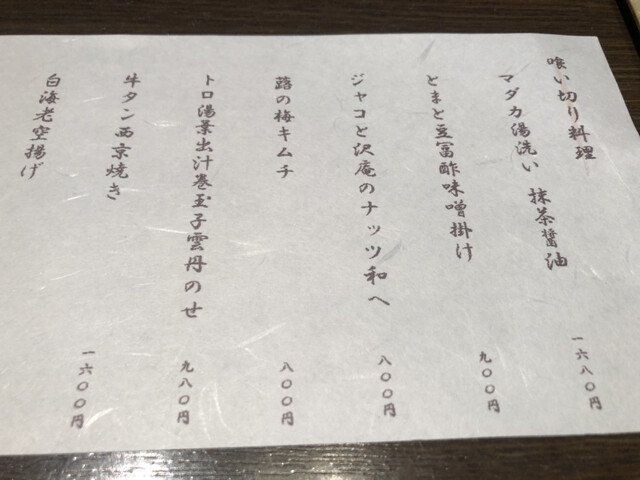 喰い切り料理
マダカ湯洗い 抹茶醤油
一六八〇円
とまと豆冨酢味噌掛け
九〇〇円
ジャコと沢庵のナッツ和へ
八〇〇円
蕗の梅キムチ
八〇〇円
トロ湯葉出汁巻玉子雲丹のせ
九八〇円
牛タン西京焼き
一六〇〇円
白海老空揚げ